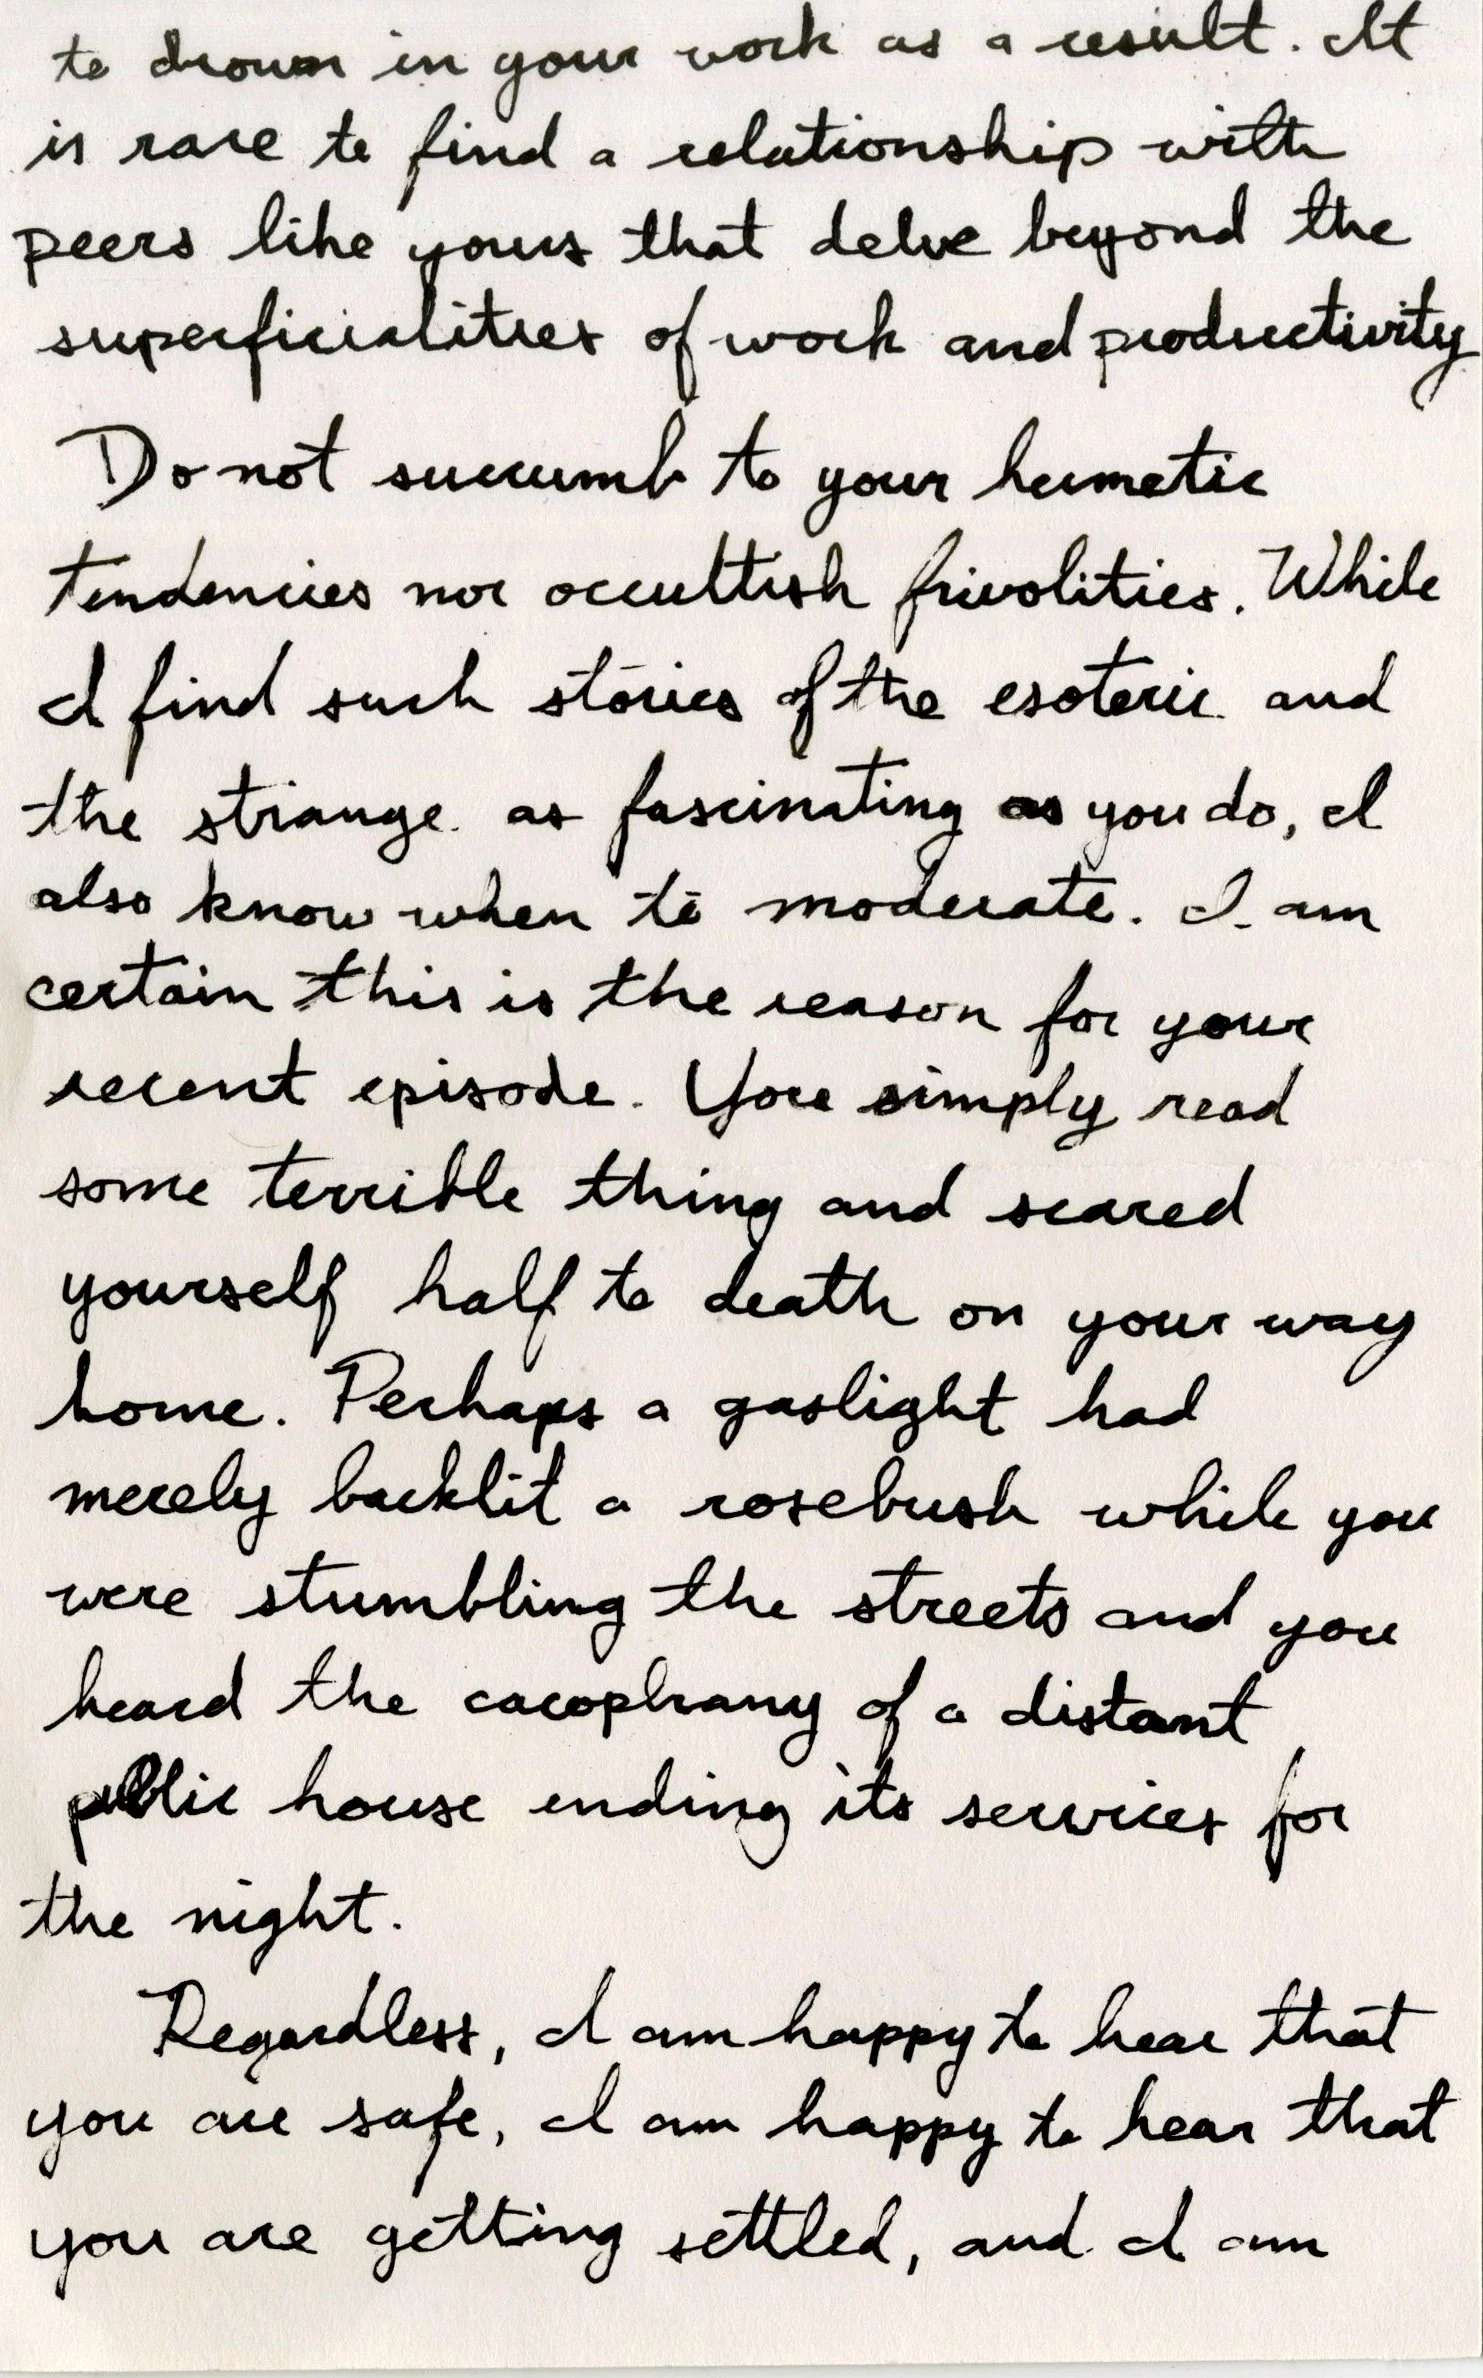 to drown in your work as a result. It
is rare to find a relationship with
peers like yours that delve beyond the
superficialities of work and productivity
Do not succumb to your hermetic
tendencies nor occultish frivolities. While
I find such stories of the esoteric and
the strange as fascinating as you do, I
also know when to moderate. I am
certain this is the reason for your
recent episode. You simply read
some terrible thing and scared
yourself half to death on your way
home. Perhaps a gaslight had
merely backlit a rosebush while you
were stumbling the streets and you
heard the cacophany of a distant
public house ending its services for
the night.
Regardless, I am happy to hear that
you are safe, I am happy to hear that
you are getting settled, and I am